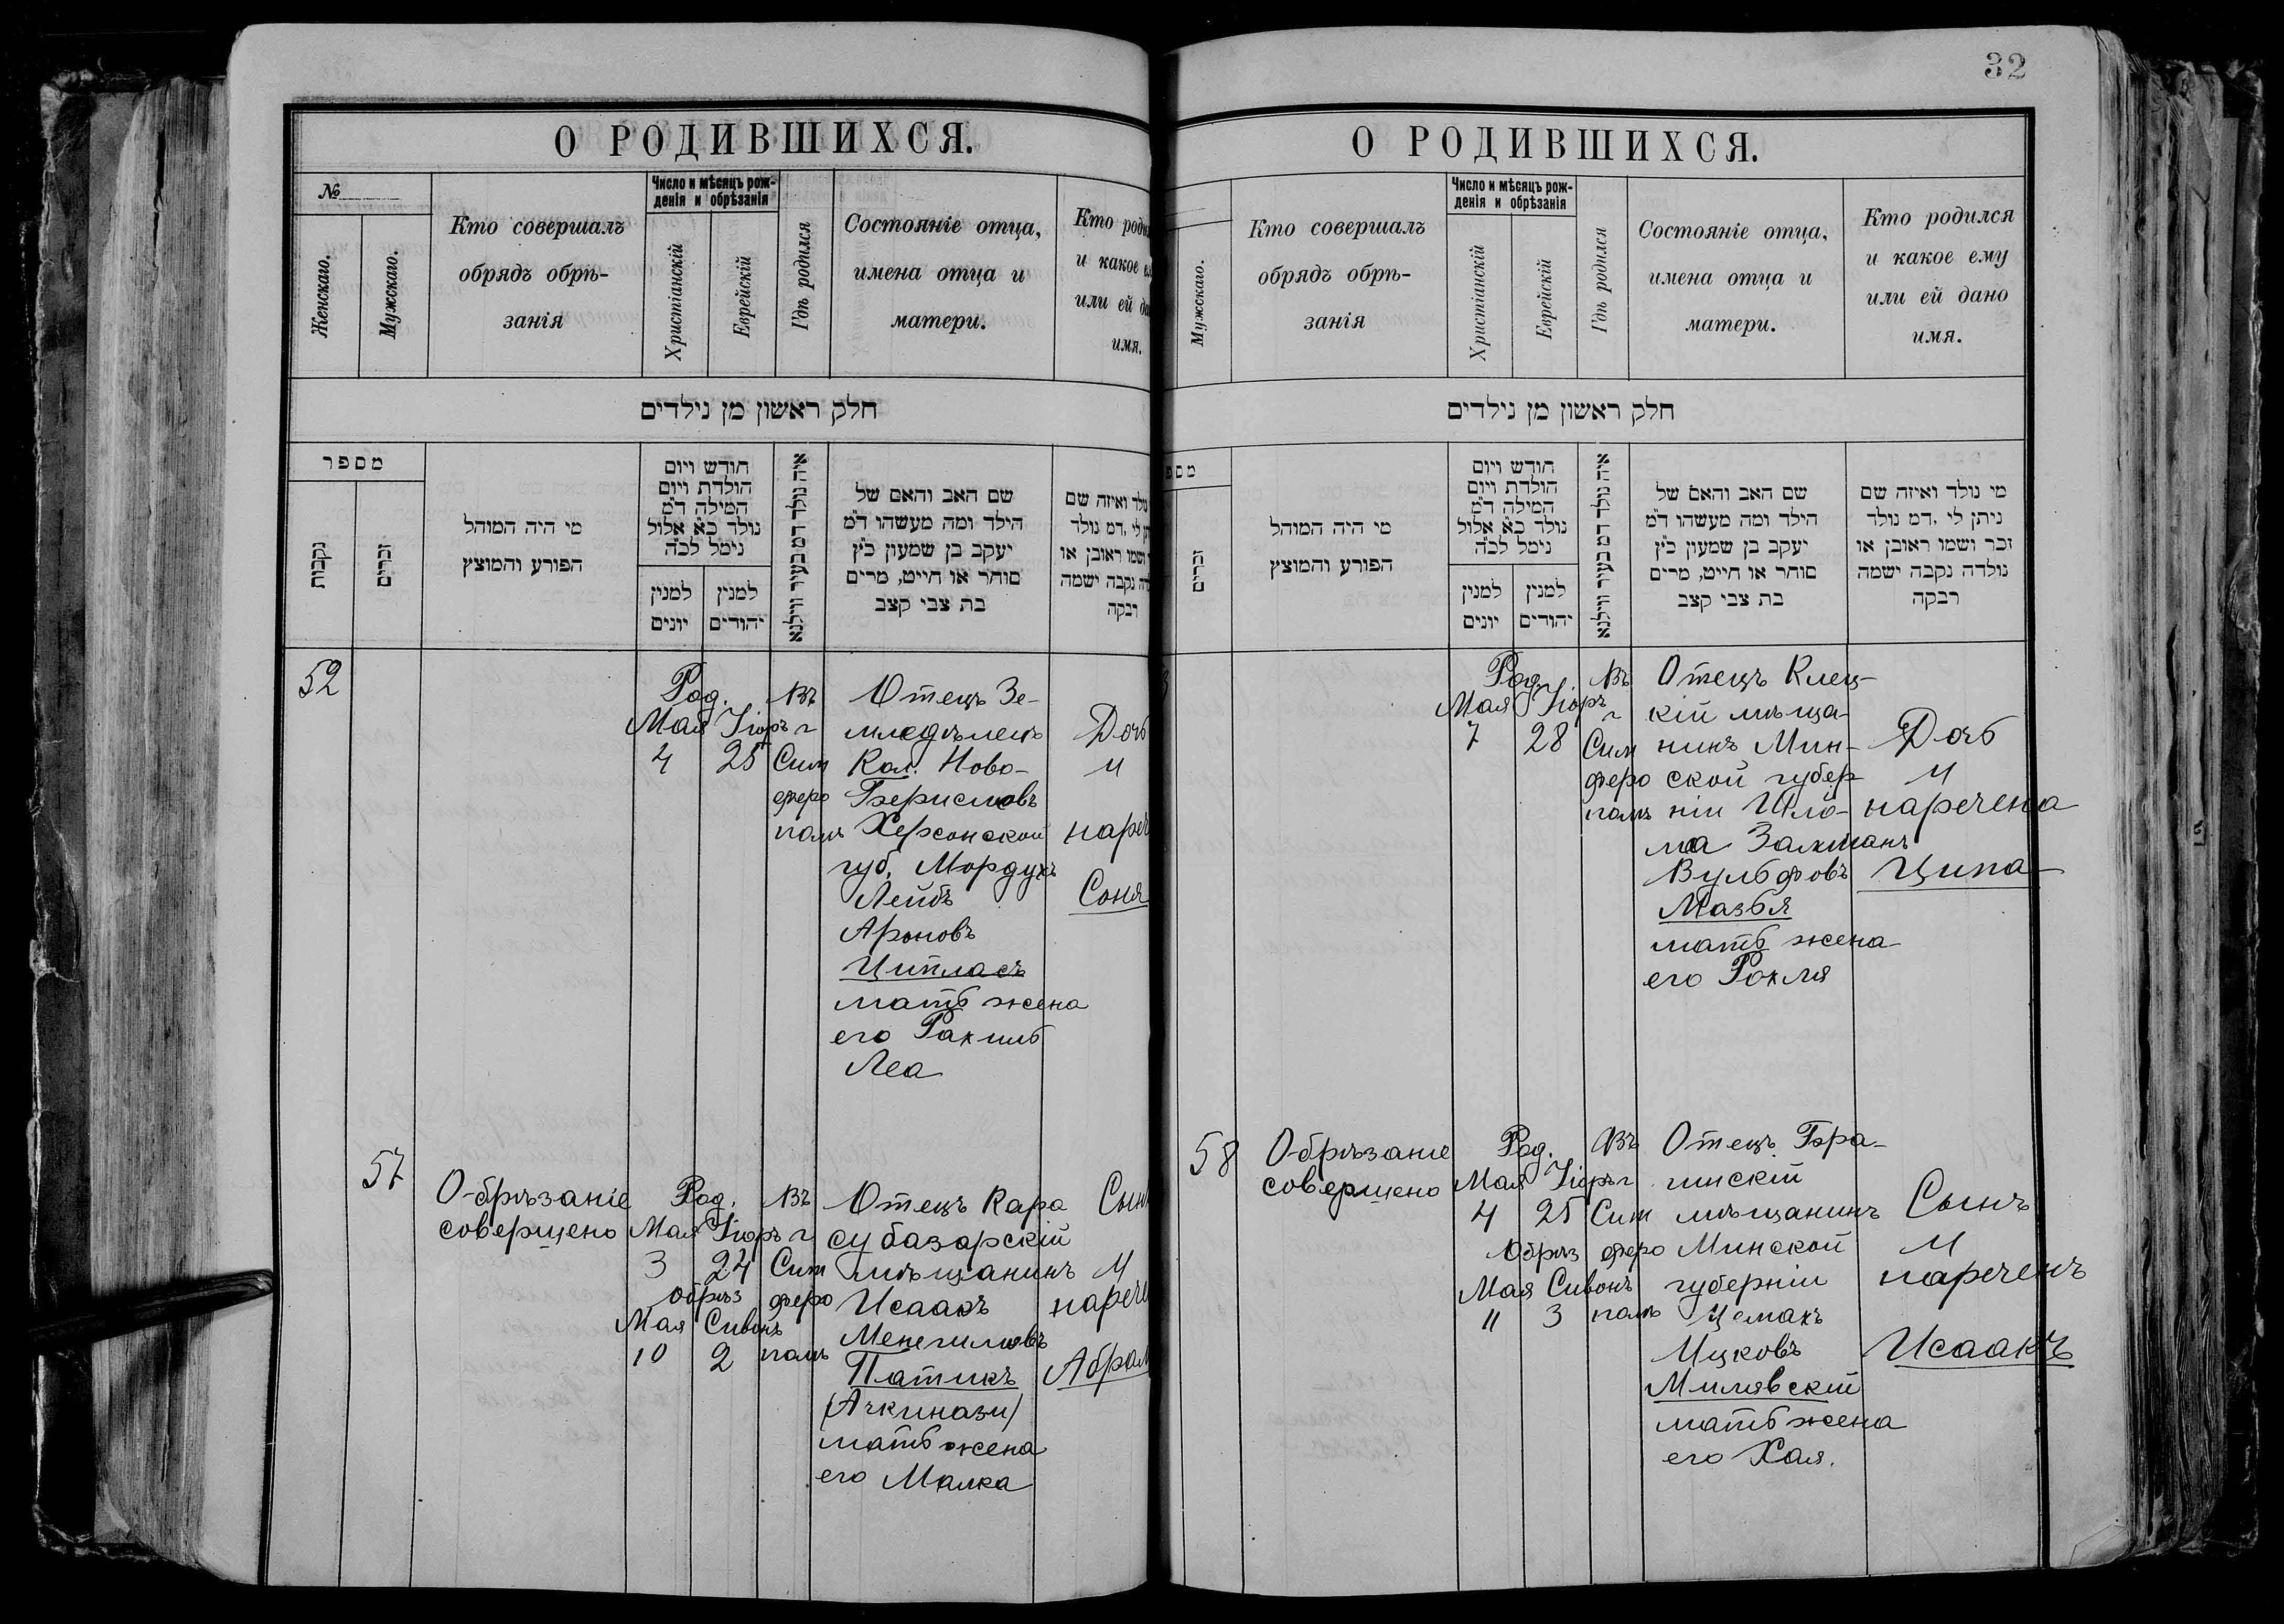 О РОДИВШИХСЯ.
№
Женскаго.
Мужскаго.
Кто совершалъ
обрядъ обрѣ-
занія
Число и мѣсяцъ рож-
денія и обрѣзанія
Христіанскій
Еврейскій
Гдѣ родился
Состояніе отца,
имена отца и
матери.
Кто
и какое
или ей
имя.
חלק ראשון מן נילדים
מספר
נקבות
זכרים
מי היה המוהל
הפורע והמוצץ
חודש ויום
הולדת ויום
המילה ד״מ
נולד כ״א אלול
נימל לכ״ה
למנין
יונים
למנין
יהודים
איה נולד דמ בעיר ווילנא
שם האב והאם של
הילד ומה מעשהו ד״מ
יעקב בן שמעון כ״ץ
סוחר או חייט, מרים
בת צבי קצב
ואיזה שם
לי, דמ נולד
ושמו ראובן או
נקבה ישמה
רבקה
52
Род.
Мая Iіоръ
4 25
Въ
г
Сим
феро
полѣ
Отецъ Зе-
мледѣлецъ
Кол. Ново-
Бериславъ
Херсонской
губ. Мордухъ
Лейбъ
Ароновъ
Циплакъ
мать жена
его Рахиль
Леа
Дочь
и
Соня
57
Обрѣзаніе
совершено
Род.
Мая Iіоръ
3 24
Обрѣз
Мая Сивонъ
10 2
Въ
г
Сим
феро
полѣ
Отецъ Кара
субазарскій
мѣщанинъ
Исаакъ
Менегилювъ
Патикъ
(Ачкинази)
мать жена
его Малка
и
32
О РОДИВШИХСЯ.
Мужскаго.
Кто совершалъ
обрядъ обрѣ-
занія
Число и мѣсяцъ рож-
денія и обрѣзанія
Христіанскій
Еврейскій
Гдѣ родился
Состояніе отца,
имена отца и
матери.
Кто родился
и какое ему
или ей дано
имя.
חלק ראשון מן נילדים
זכרים
מי היה המוהל
הפורע והמוצץ
חודש ויום
הולדת ויום
המילה ד״מ
נולד כ״א אלול
נימל לכ״ה
למנין
יונים
למנין
יהודים
איה נולד דמ בעיר ווילנא
שם האב והאם של
הילד ומה מעשהו ד״מ
יעקב בן שמעון כ״ץ
סוחר או חייט, מרים
בת צבי קצב
מי נולד ואיזה שם
ניתן לי, דמ נולד
זכר ושמו ראובן או
נולדה נקבה ישמה
רבקה
Род.
Мая Iіоръ
7 28
Въ
г
Сим
феро
полѣ
Отецъ Клец-
кій мѣща-
нинъ Мин-
ской губер
ніи Шло-
ма Залманъ
Вульфовъ
Мазья
мать жена
его Рохля
Дочь
и
наречена
Ципа
58
Обрѣзаніе
совершено
Род.
Мая Iіоръ
4 25
Обрѣз
Мая Сивонъ
11 3
Въ
г
Сим
феро
полѣ
Отецъ Бра-
гинскій
мѣщанинъ
Минской
губерніи
Цемахъ
Ицковъ
Милявскій
мать жена
его Хая.
Сынъ
и
нареченъ
Исаакъ